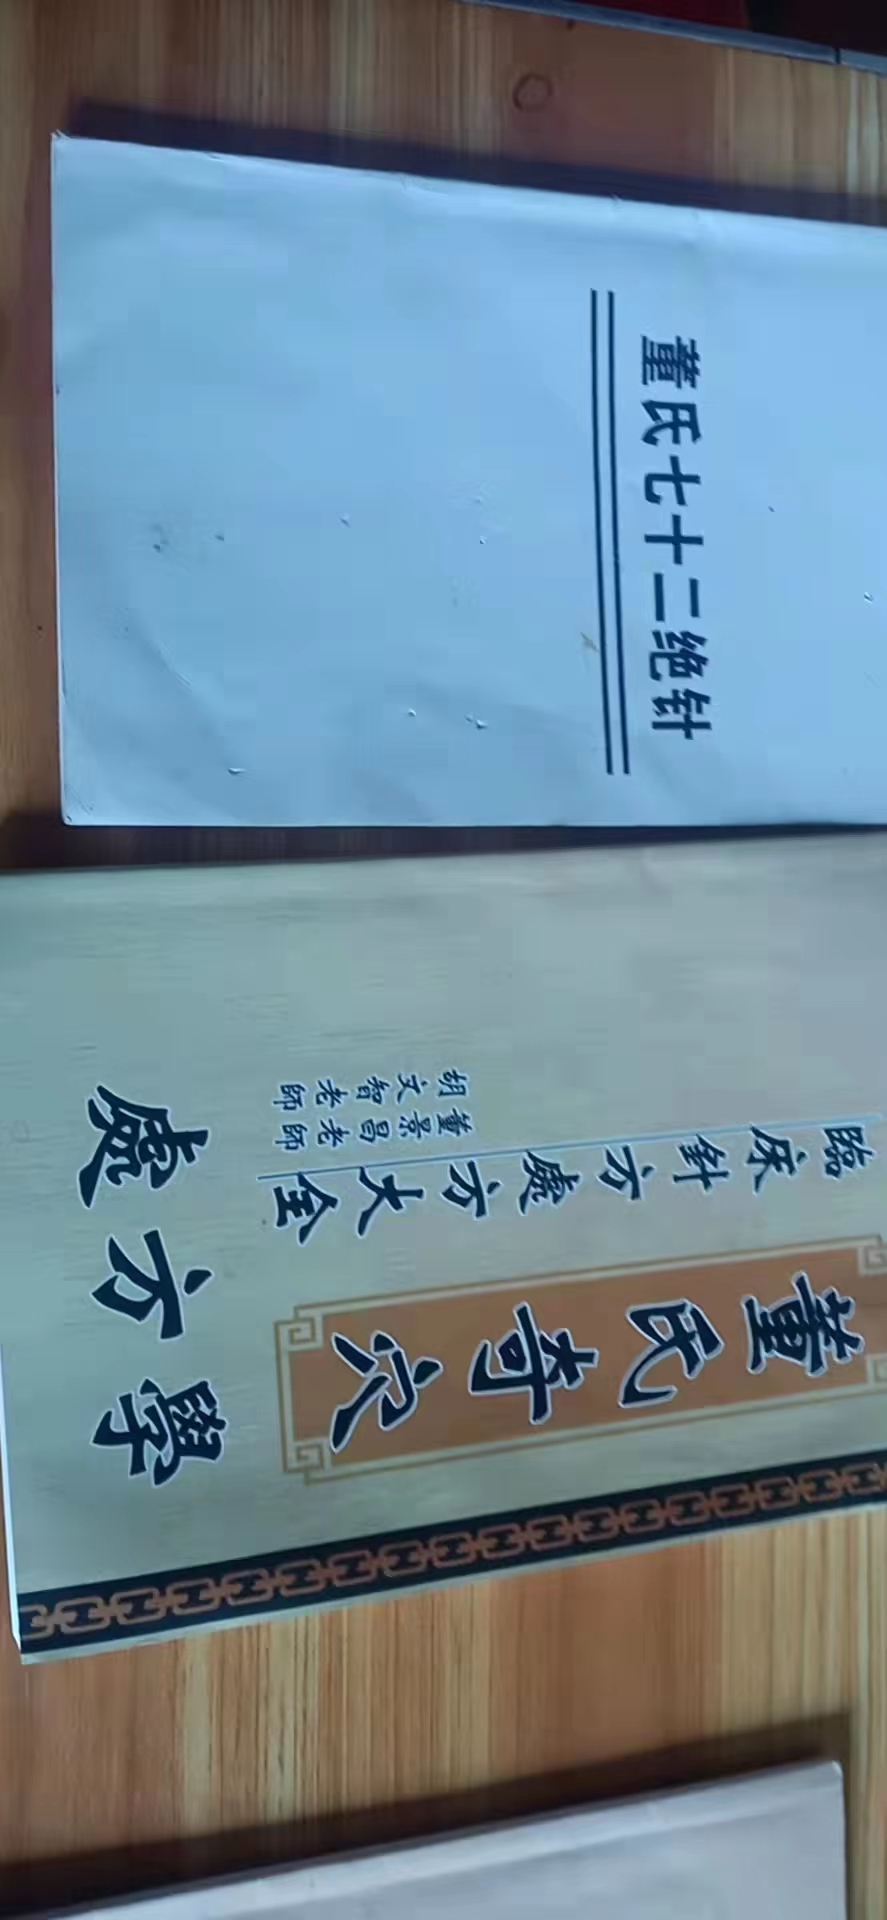 董氏七十二绝针
董氏奇穴
臨床針方處方大全
董景昌老師
胡文智老師
處方學